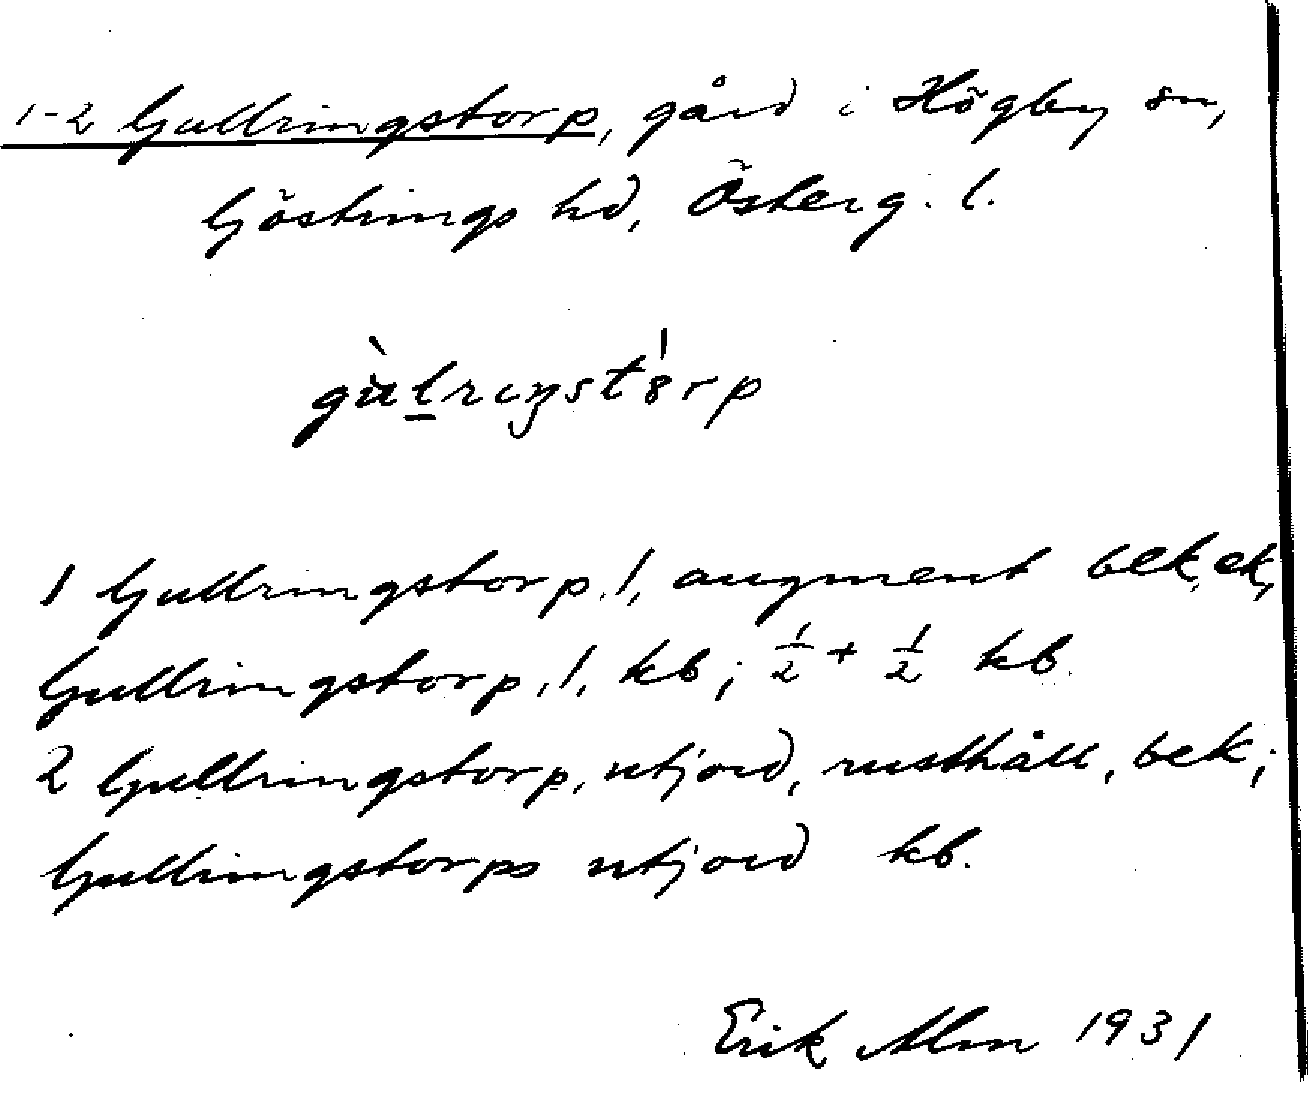 1-2 Gullringstorp, gård i Högby sn,
Göstrings hd, Österg. l.
1 Gullringstorp, 1, augment bek, ek,
Gullringstorp, 1, kb; ½ + ½ kb.
2 Gullringstorp, utjord, rusthåll, bek;
Gullringstorps utjord kb.
Erik Alm 1931